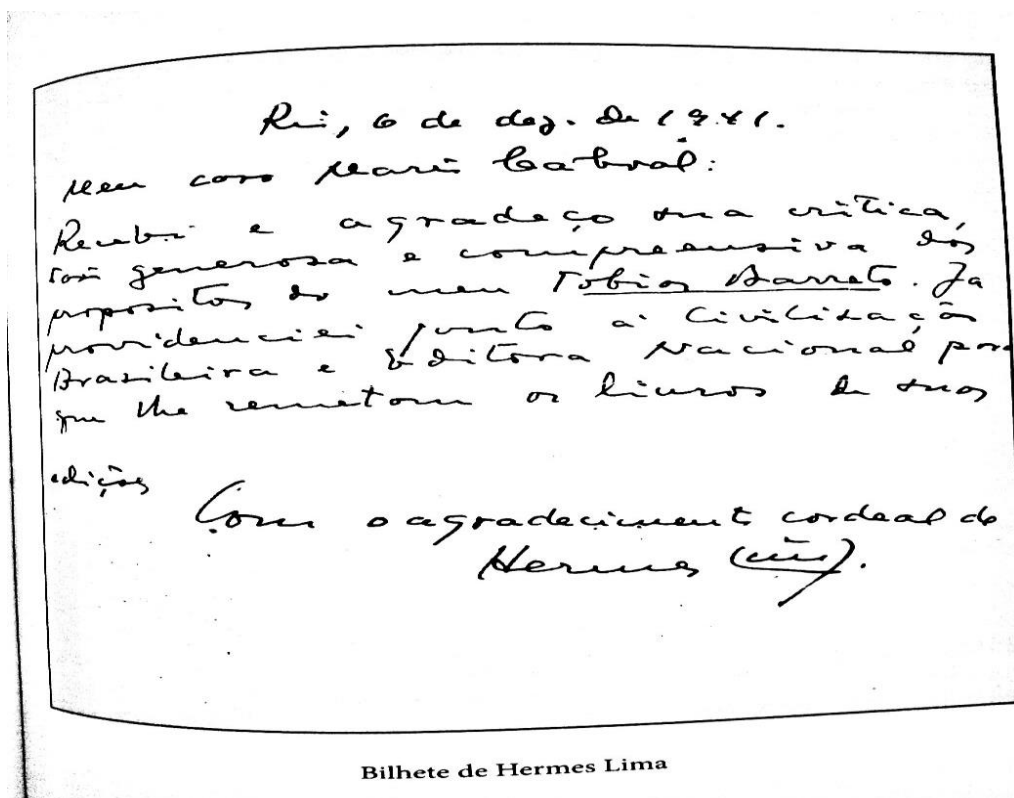 Rio, 6 de dez. de 1941.
Meu caro Mario Cabral:
Recebi e agradeço sua crítica,
tão generosa e compreensiva dos
propositos do meu Tobias Barreto. Ja
providenciei junto à Civilização
Brasileira e Editora Nacional para
que lhe remetam os livros de suas
edições
Com o agradecimento cordeal do
Hermes Lima.
Bilhete de Hermes Lima